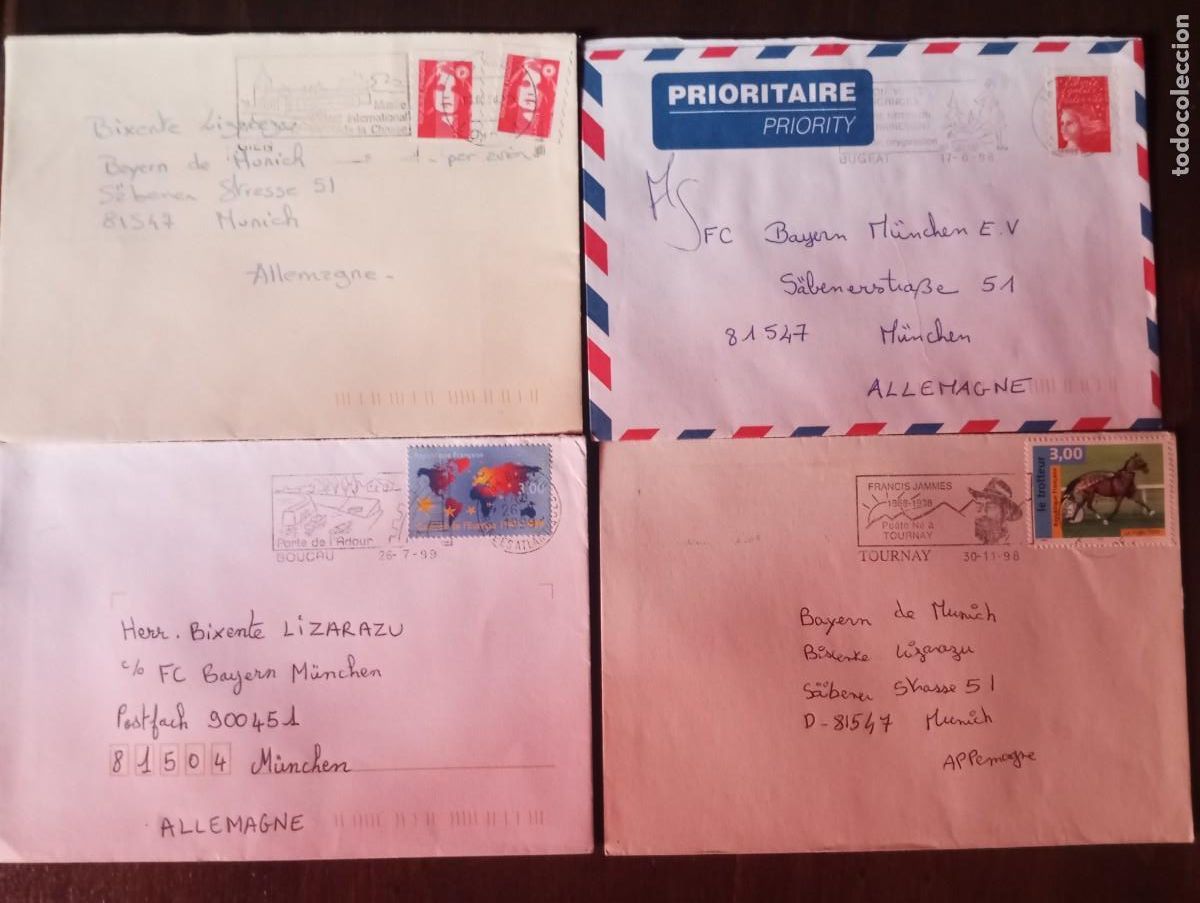 Musée
international
de la Chasse
GIEN
Bixente Lizarazu
Bayern de Munich
par avion
Säbener Stresse 51
81547 Munich
Allemagne -
PRIORITAIRE
PRIORITY
BUGEAT 17-8-98
FC Bayern München E.V
Säbenerstraße 51
81547 München
ALLEMAGNE
République Française
3,00
Conseil de l'Europe
Porte de l'Adour
BOUCAU 26-7-99
Herr. Bixente LIZARAZU
c/o FC Bayern München
Postfach 900451
81504 München
ALLEMAGNE
FRANCIS JAMMES
1868-1938
Poète Né à
TOURNAY
TOURNAY 30-11-98
le trotteur
République Française
3,00
Bayern de Munich
Bixente Lizarazu
Säbener Strasse 51
D-81547 Munich
Allemagne
todocoleccion